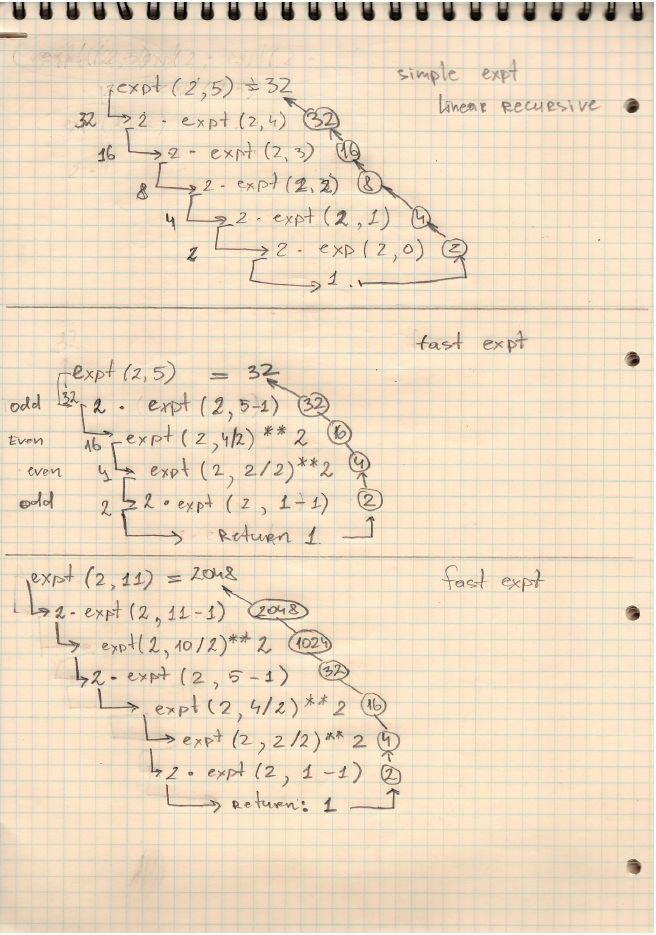 simple expt
linear recursive
expt (2,5) = 32
32 2 · expt (2,4) 32
16 2 · expt (2,3) 16
8 2 · expt (2,2) 8
4 2 · expt (2,1) 4
2 2 · exp (2,0) 2
1
fast expt
expt (2,5) = 32
odd 32 2 · expt (2,5-1) 32
Even 16 expt (2,4/2) ** 2 16
even 4 expt (2,2/2) ** 2 4
odd 2 2 · expt (2,1-1) 2
Return 1
fast expt
expt (2,11) = 2048
2 · expt (2,11-1) 2048
expt(2,10/2) ** 2 1024
2 · expt (2,5-1) 32
expt (2,4/2) ** 2 16
expt (2,2/2) ** 2 4
2 · expt (2,1-1) 2
Return: 1